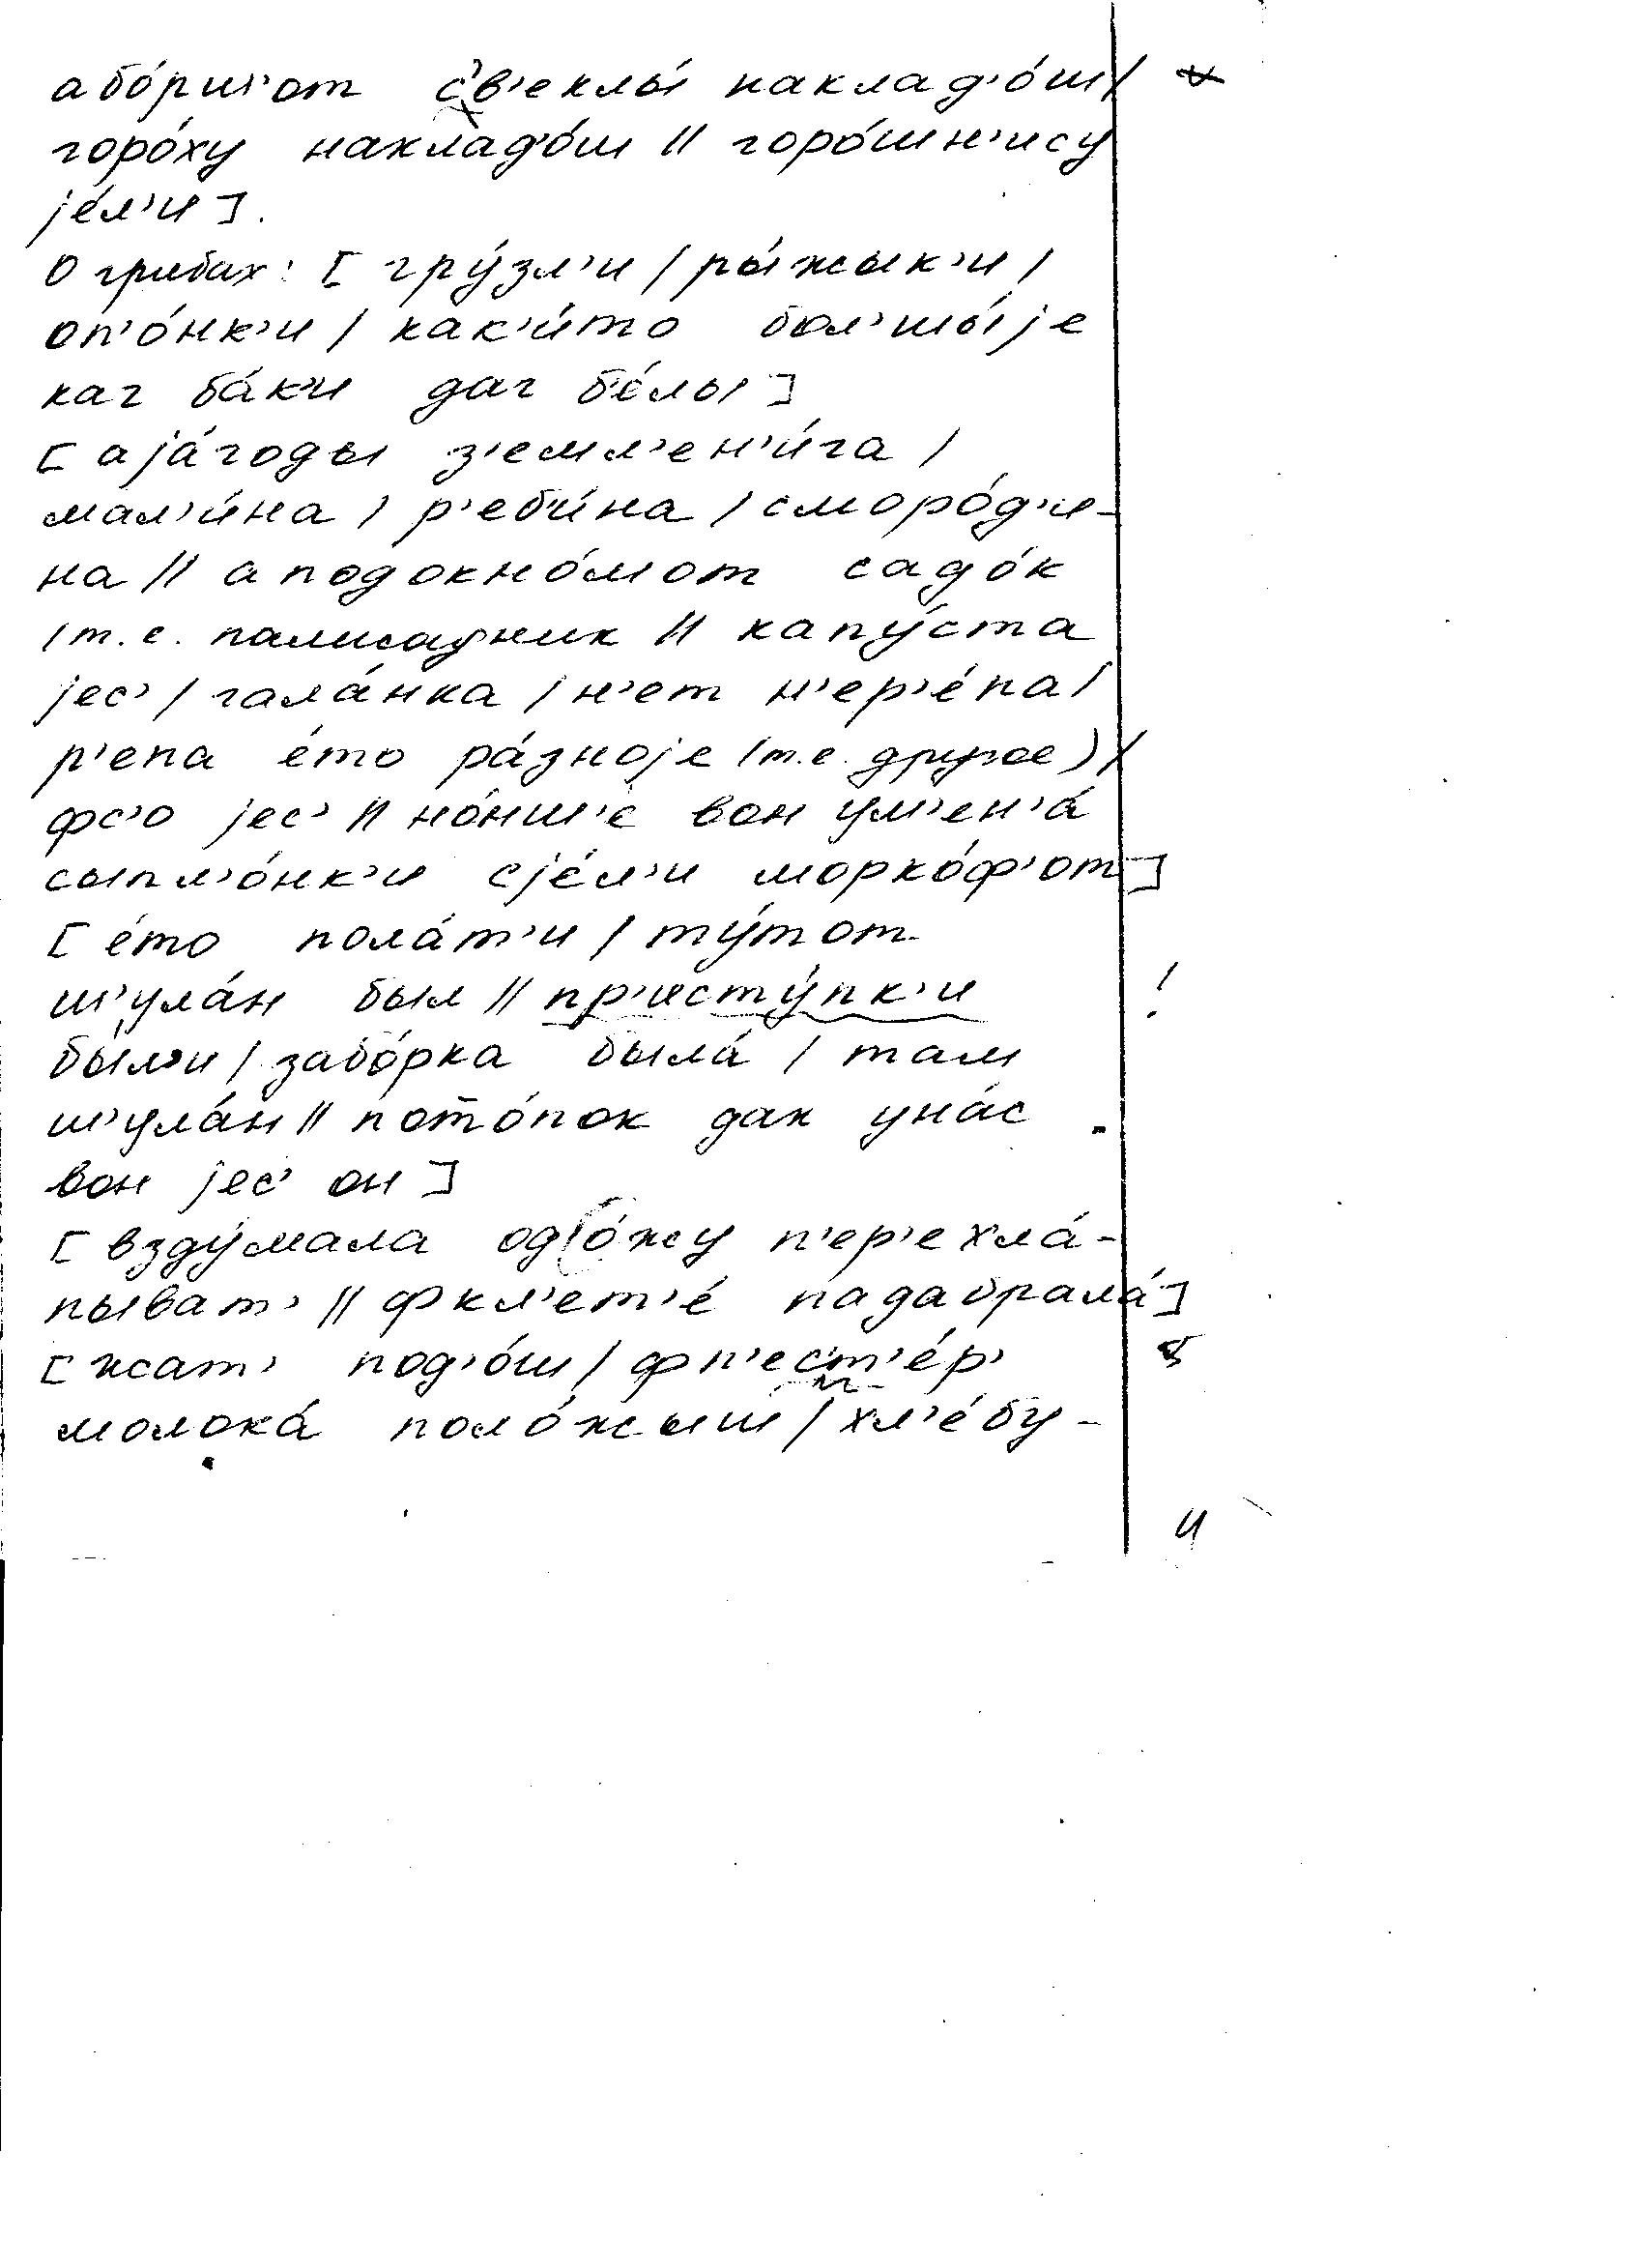 або́риш'от с'в'еклы́ наклад'о́ш/
горо́ху наклад'о́ш // горо́шн'ису
је́л'и].
О грибах: [гру́зл'и / ры́жык'и /
оп'о́нк'и / как'и́то бол'шы́је
каг ба́к'и даг б'е́лы]
[аја́годы з'емл'ен'и́га /
мал'и́на / р'еб'и́на / сморо́д'и-
на // а подокно́мот садо́к
/т.е. палисадник // капу́ста
јес' / гала́нка / н'ет н'ер'е́па /
р'епа е́то ра́зноје (т.е. другое) /
фс'о јес' // но́нш'е вон ум'ен'а́
сыпл'о́нк'и сје́л'и морко́ф'от]
[е́то пола́т'и / ту́тот
ш'ула́н был // пр'исту́пк'и !
бы́л'и / забо́рка была́ / там
ш'ула́н // пото́пок дак уна́с
вон јес' он]
[взду́мала од'о́жу п'ер'ехла́-
пыват' // фкл'ет'е́ падабрала́]
[жат' под'о́ш / фп'ес'т'е́р'
молока́ поло́жыш / хл'е́бу-
4